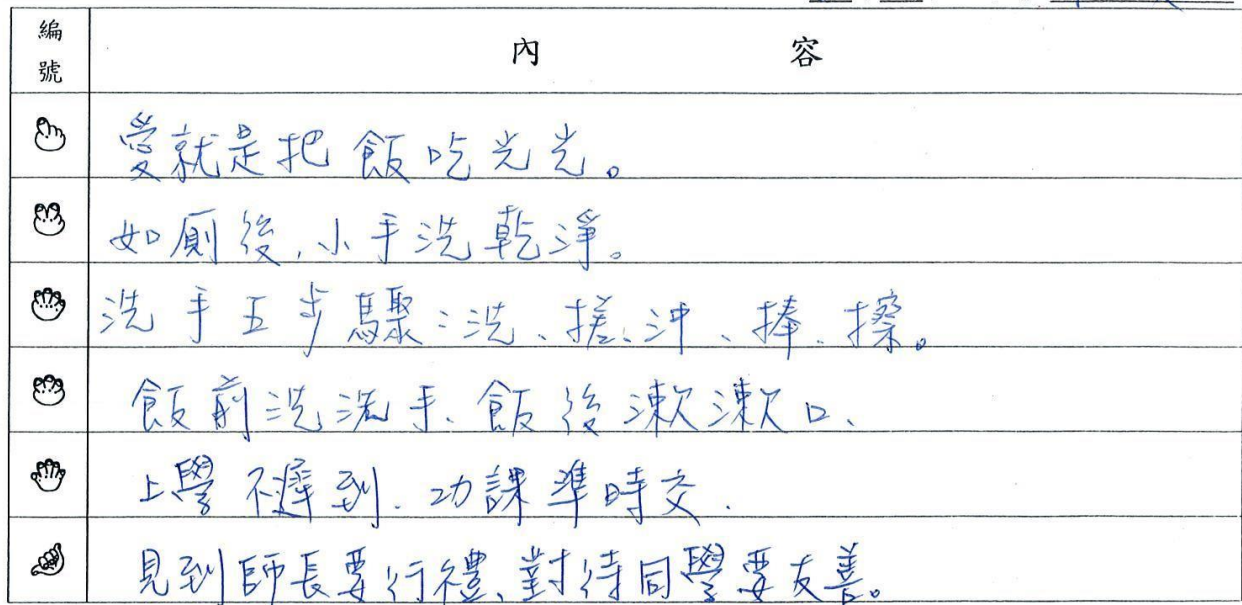 編號
內容
愛就是把飯吃光光。
如廁後,小手洗乾淨。
洗手五步驟:洗、搓、沖、捧、擦。
飯前洗洗手、飯後漱漱口、
上學不遲到.功課準時交.
見到師長要行禮、對待同學要友善。